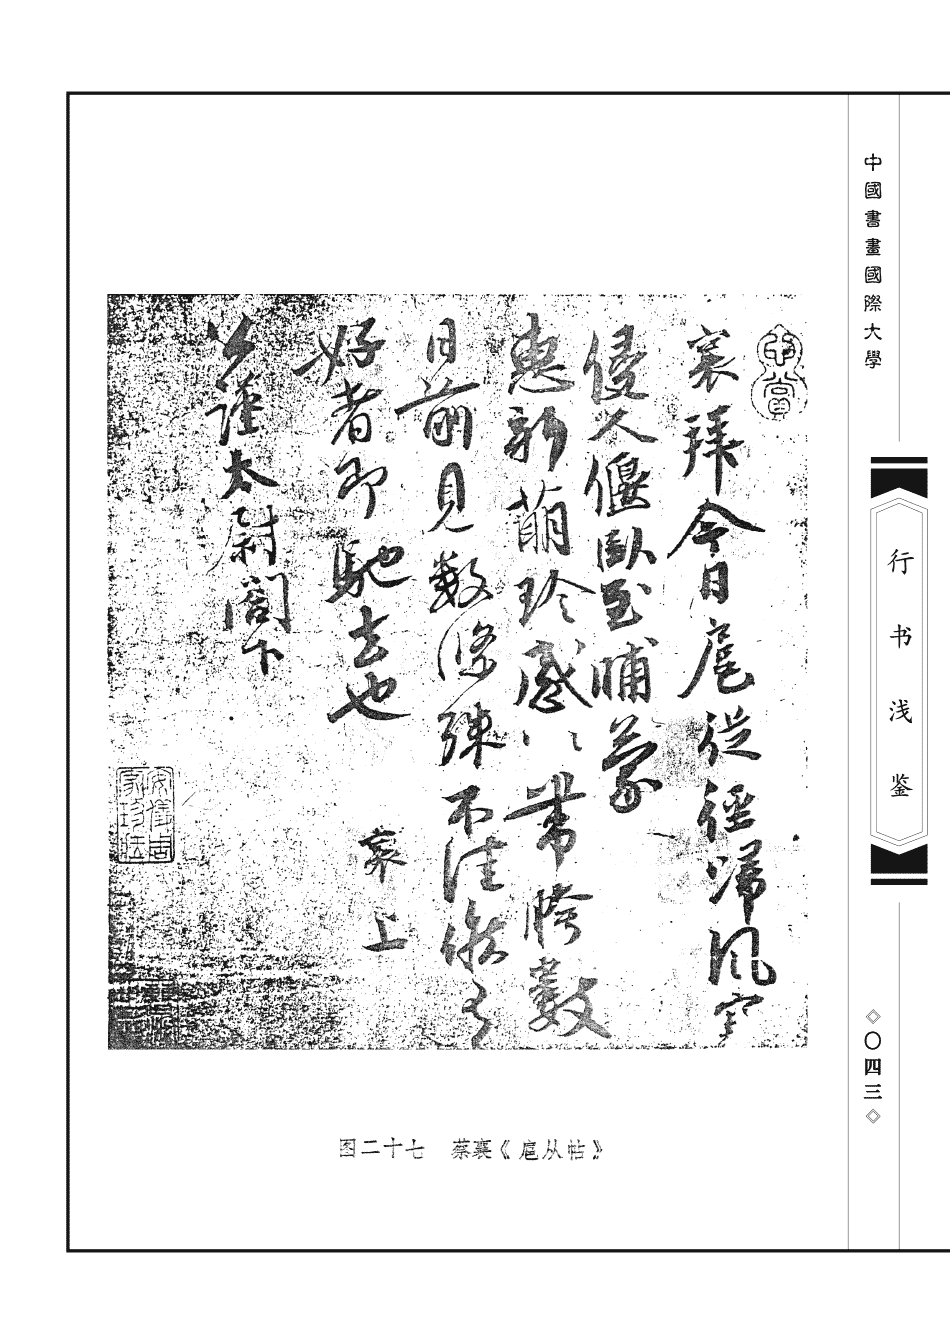 中國書畫國際大學
行书浅鉴
〇四三
襄拜今日扈從徑歸風寒
侵人偃臥至晡蒙
惠新萌珍感〻帶胯數
日前見數條殊不佳候有
好者即馳去也 襄上
公謹太尉閣下
安儀周
家珍藏
图二十七 蔡襄《扈从帖》